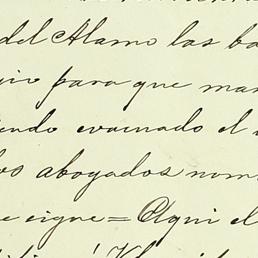 del Alamo las ba
para que man
iendo evacuado el
os abogados nom
e sigue = Aqui el